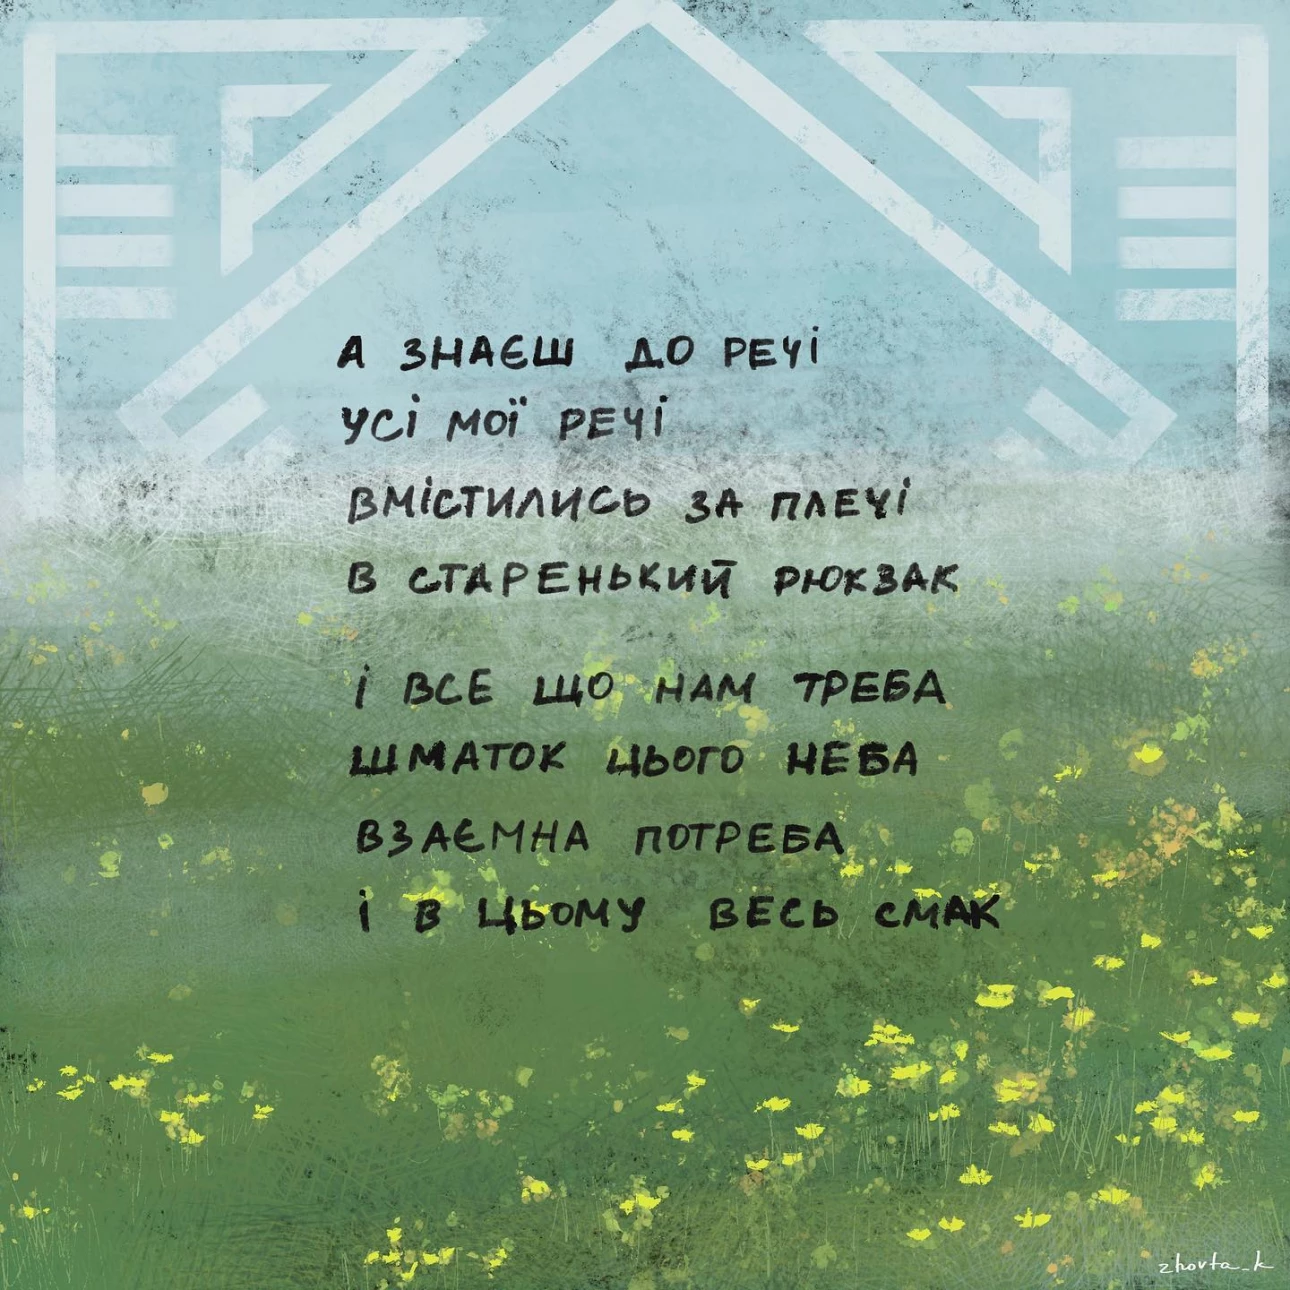 А ЗНАЄШ ДО РЕЧІ
УСІ МОЇ РЕЧІ
ВМІСТИЛИСЬ ЗА ПЛЕЧІ
В СТАРЕНЬКИЙ РЮКЗАК
І ВСЕ ЩО НАМ ТРЕБА
ШМАТОК ЦЬОГО НЕБА
ВЗАЄМНА ПОТРЕБА
І В ЦЬОМУ ВЕСЬ СМАК
zhovta_k